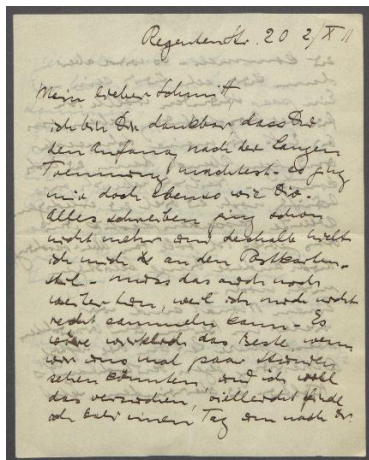 Regentenstr. 20 2/X 11
Mein lieber Schmitt
ich bin Dir dankbar dass Du
den Anfang nach der langen
Trennung machtest. Es ging
mir doch ebenso wie Dir.
Alles schreiben ging schon
nicht mehr und deshalb hielt
ich mich an den Postkarten-
stil - muss das auch noch
weiter tun, weil ich mich nicht
recht sammeln kann - Es
wäre wirklich das Beste wenn
wir uns mal paar Stunden
sehen könnten, und ich will
das versuchen, vielleicht finde
ich einen Tag um nach